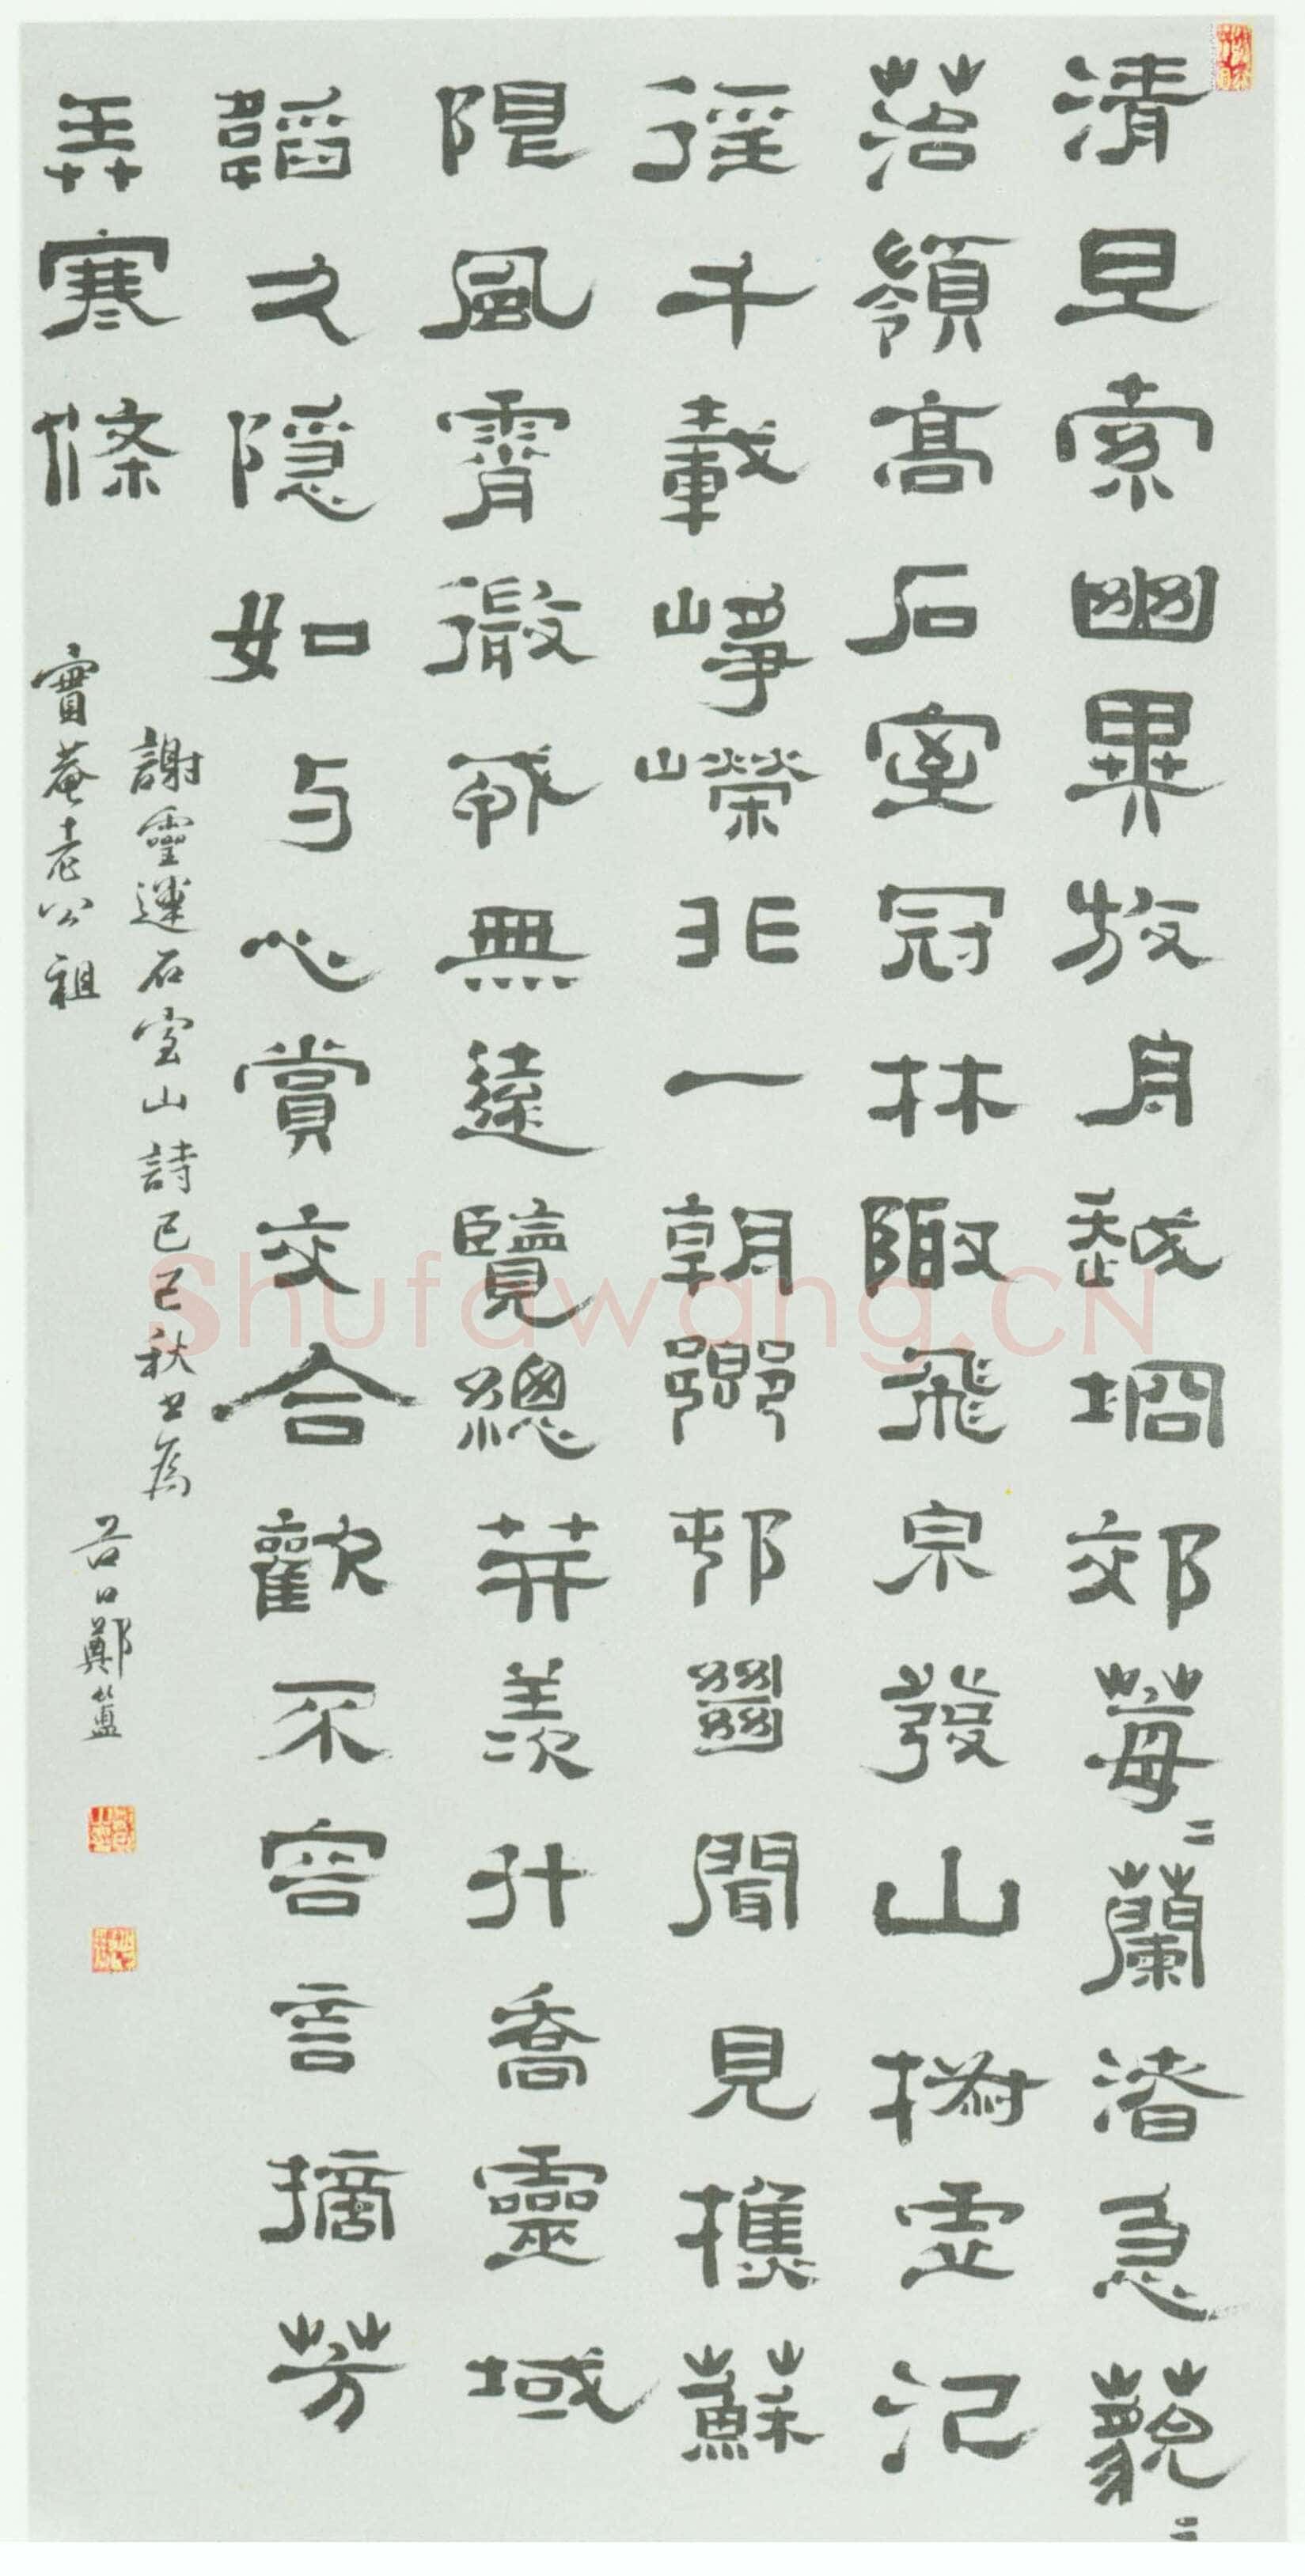 清旦索幽異放舟越坰郊莓二蘭渚急藐二
菭嶺高石室冠林陬飛泉發山椒虛氾
徑千載崢嶸非一朝鄉邨絕聞見樵蘇
限風霄微戎無遠覽總笄羨升喬靈域
韜久隱如与心賞交合歡不容言摘芳
弄寒條
謝靈運石室山詩己巳秋書為
實菴老公祖
谷口鄭簠
Shufawang.CN